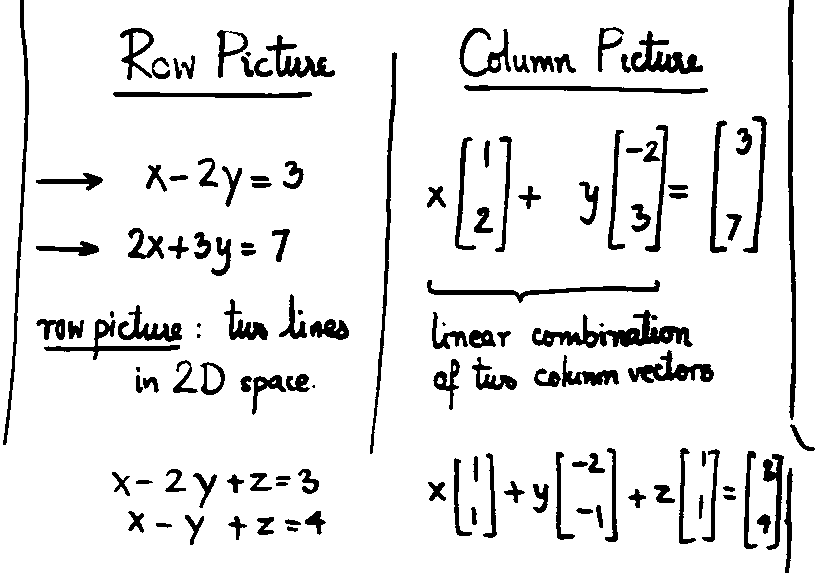 Row Picture
→ x - 2y = 3
→ 2x + 3y = 7
row picture : two lines
in 2D space.
x - 2y + z = 3
x - y + z = 4
Column Picture
x [1 2] + y [-2 3] = [3 7]
linear combination
of two column vectors
x [1 1] + y [-2 -1] + z [1 1] =